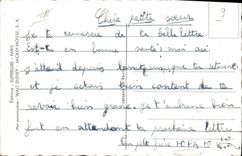 Chère petite sœur
Je te remercie de ta belle lettre.
Est-tu en bonne santé? moi aussi
j'attend depuis longtemps que tu
et je serais bien content de te
revoir bien grande. Je t'embrasse bien
fort en attendant ta prochaine lettre
Ton petit frère
Éditions "SUPERLUXE" - PARIS
Par autorisation WALT DISNEY - MICKEY MOUSE, S. A.
9